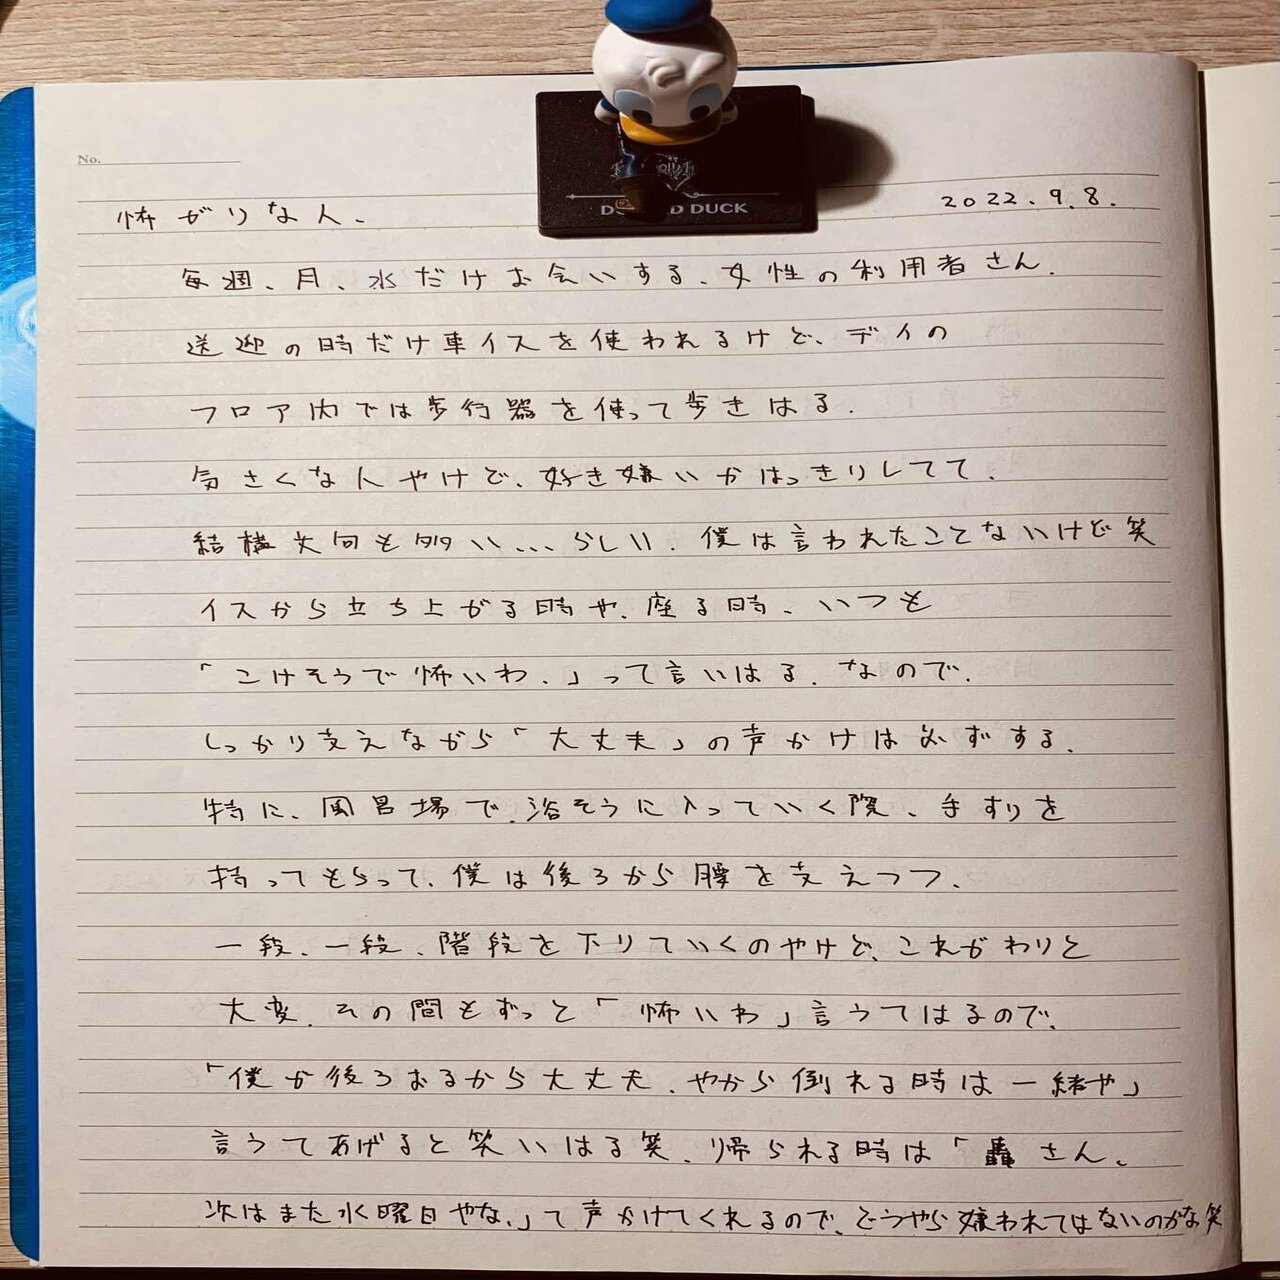 No.
DONALD DUCK
怖がりな人、
2022.9.8.
毎週、月、水だけお会いする、女性の利用者さん。
送迎の時だけ車イスを使われるけど、デイの
フロア内では歩行器を使って歩きはる。
気さくな人やけど、好き嫌いがはっきりしてて、
結構文句も多い...らしい。僕は言われたことないけど笑
イスから立ち上がる時や、座る時、いつも
「こけそうで怖いわ。」って言いはる。なので、
しっかり支えながら「大丈夫」の声かけは必ずする。
特に、風呂場で、浴そうに入っていく際、手すりを
持ってもらって、僕は後ろから腰を支えつつ、
一段、一段、階段を下りていくのやけど、これがわりと
大変。その間もずっと「怖いわ」言うてはるので、
「僕が後ろおるから大丈夫、やから倒れる時は一緒や」
言うてあげると笑いはる笑。帰られる時は「轟さん、
次はまた水曜日やな。」て声かけてくれるので、どうやら嫌われてはないのかな笑